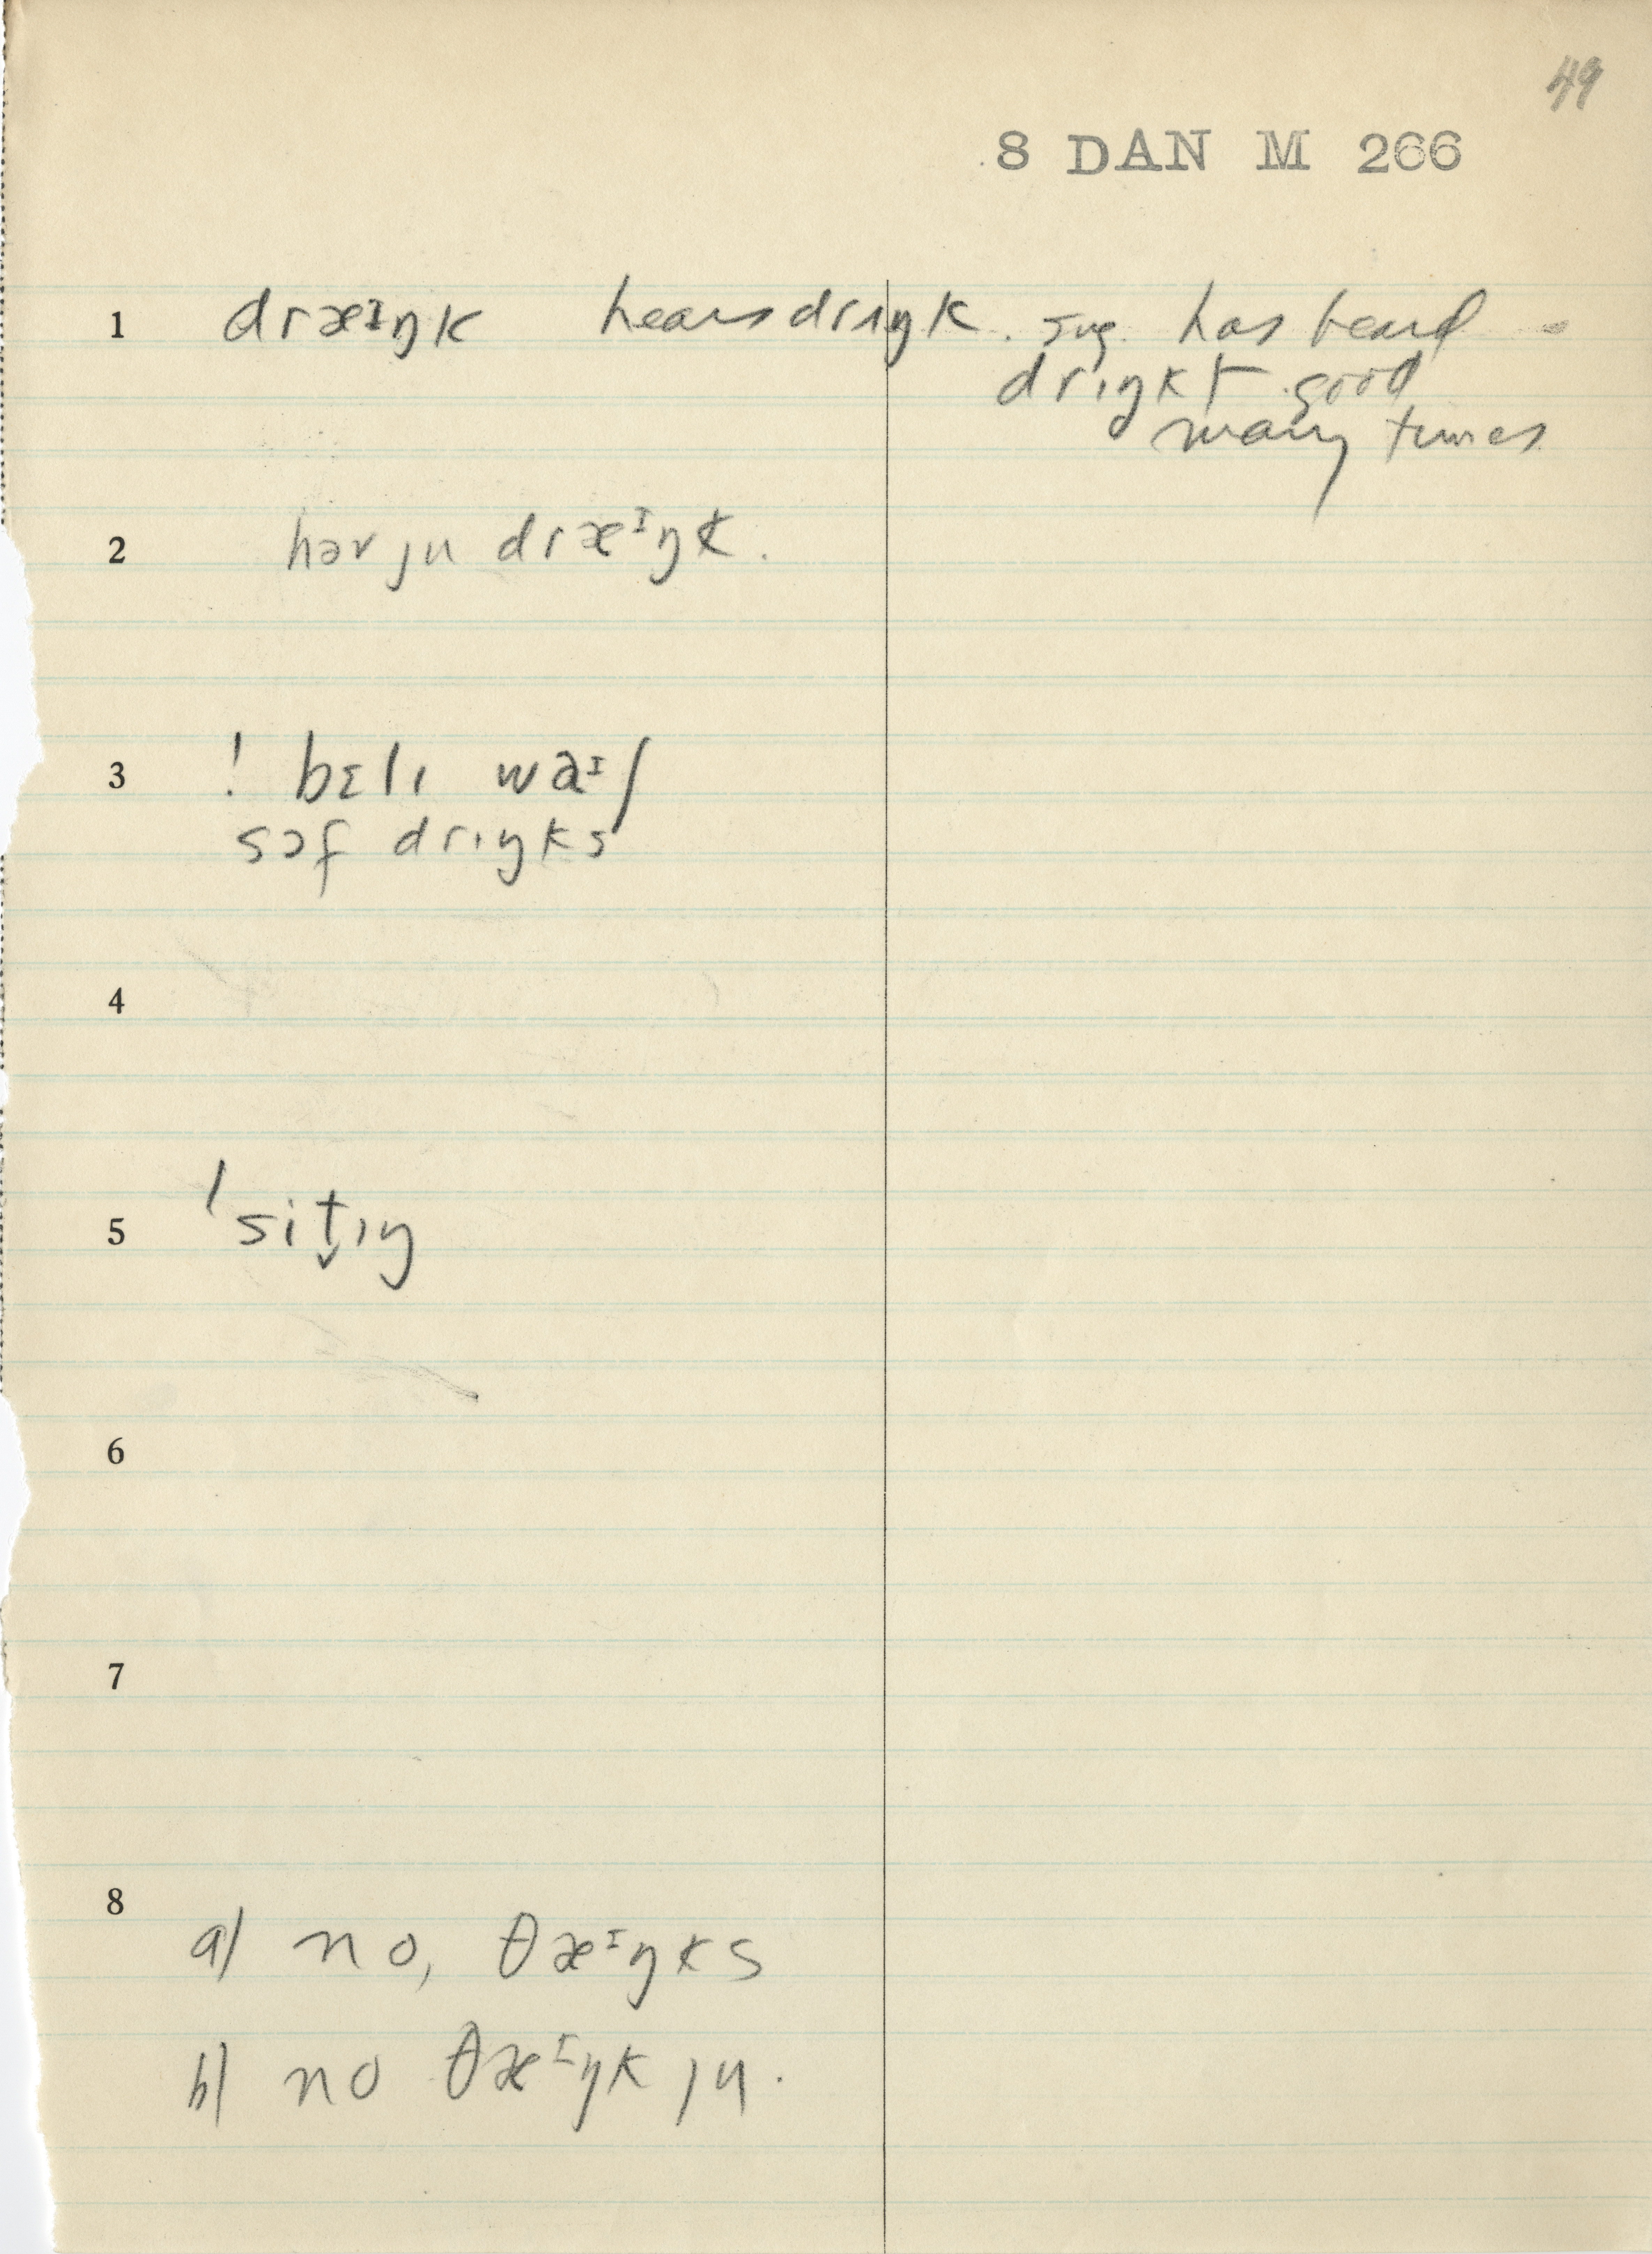 49
8 DAN M 266
1 dræᴵŋk hears drɪŋk. sug. has heard -
drɪŋkt good
many times
2 həv ju dræᴵŋk.
3 ! bɛlɪ waᴵʃ
sɔf drɪŋks
4
5 ˈsit̬ɪŋ
6
7
8
a) no, θæᴵŋks
b) no θæᴵŋk ju.